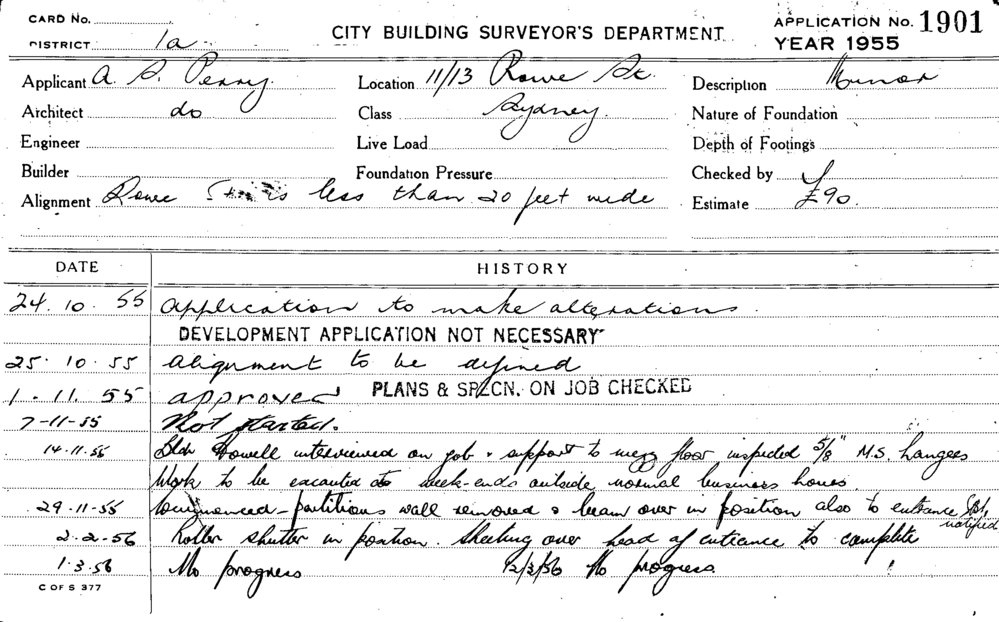 CARD No.
DISTRICT 1a
CITY BUILDING SURVEYOR'S DEPARTMENT
APPLICATION No. 1901
YEAR 1955
Applicant A. S. Perry Location 11/13 Rowe St. Description Minor
Architect do Class Sydney. Nature of Foundation
Engineer Live Load Depth of Footings
Builder Foundation Pressure Checked by
Alignment Rowe St is less than 20 feet wide Estimate £90.
DATE HISTORY
24.10.55 Application to make alterations.
DEVELOPMENT APPLICATION NOT NECESSARY
25.10.55 Alignment to be defined
1.11.55 approved PLANS & SPECN. ON JOB CHECKED
7-11-55 Not started.
14.11.55 Bldr Howell interviewed on job & support to mezz floor inspected 5/8" M.S. hangers
Work to be executed week-ends outside normal business hours
29-11-55 Commenced - partitions wall removed & beam over in position also to entrance
notified
2-2-56 Roller shutter in position. Sheeting over head of entrance to complete
1.3.56 No progress 12/3/56 No progress
C OF S 377